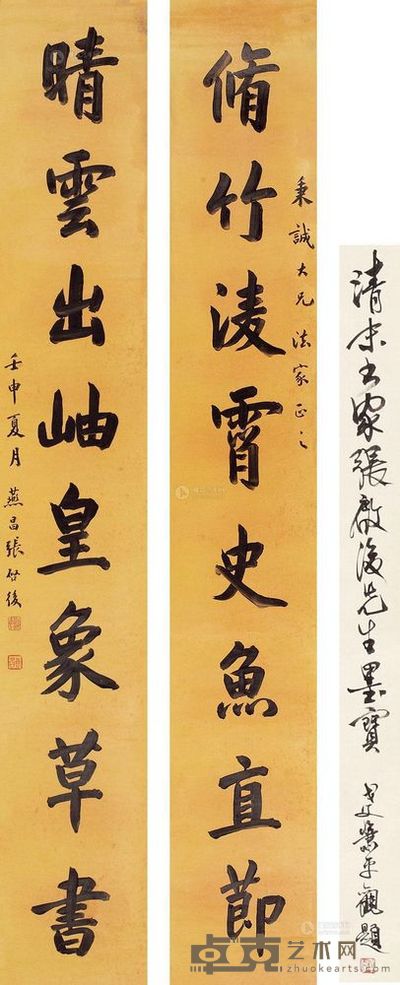 清末书家張啟後先生墨寶
觀題
秉誠大兄法家正之
脩竹淩霄史魚直節
晴雲出岫皇象草書
壬申夏月燕昌張啟後
卓克艺术网
www.zhuokearts.com